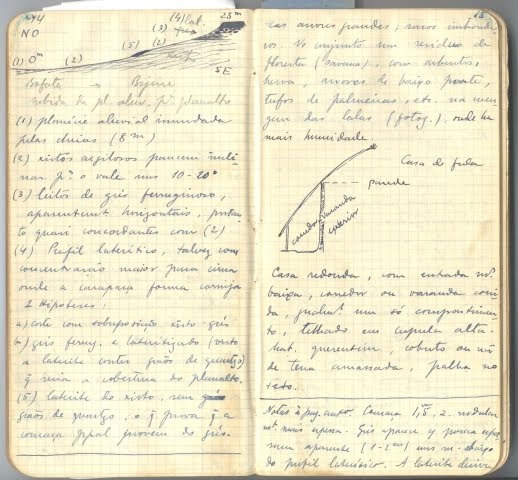 244
NO
(1) 0m (2) (5) (2) (3) (4) Lat. 25m
xisto
SE
Bafata → Bijine
subida da pl. aluv. pª planalto
(1) planície aluvial inundada
pelas cheias (8m)
(2) xistos argilosos parecem incli
nar pª o vale uns 10-20°
(3) leitos de grés ferruginoso,
aparentemte horizontais, portan
to quasi concordantes com (2)
(4) Perfil laterítico, talvez com
concentração maior para cima
onde a carapaça forma cornija
2 Hipóteses:
a) corte com sobreposição xisto-grés
b) grés ferrug. e lateritizado (visto
a laterite conter grãos de quartzo)
q seria a cobertura do planalto.
(5) laterite do xisto, sem
grãos de quartzo, o q prova q a
couraça ppal provém do grés.
cas árvores grandes; raros imbondei
ros. No conjunto um resíduo de
floresta (savana), com arbustos,
herva, árvores de baixo porte,
tufos de palmeiras, etc. na mar
gem das lalas (fotog.), onde há
mais humidade.
Casa de fula
parede
corredor
varanda
exterior
Casa redonda, com entrada mto
baixa, corredor ou varanda corri
da, um só compartimen
to, telhado em cupula alta.
coberto ou não
de terra amassada, palha no
resto.
Notas à pag. anter. Couraça 1,5, 2m nodular
mto rija espessa. Grés aparece q pouca espes
sura aparente (1-2m) uns m. abaixo
do perfil laterítico. A laterite deriva